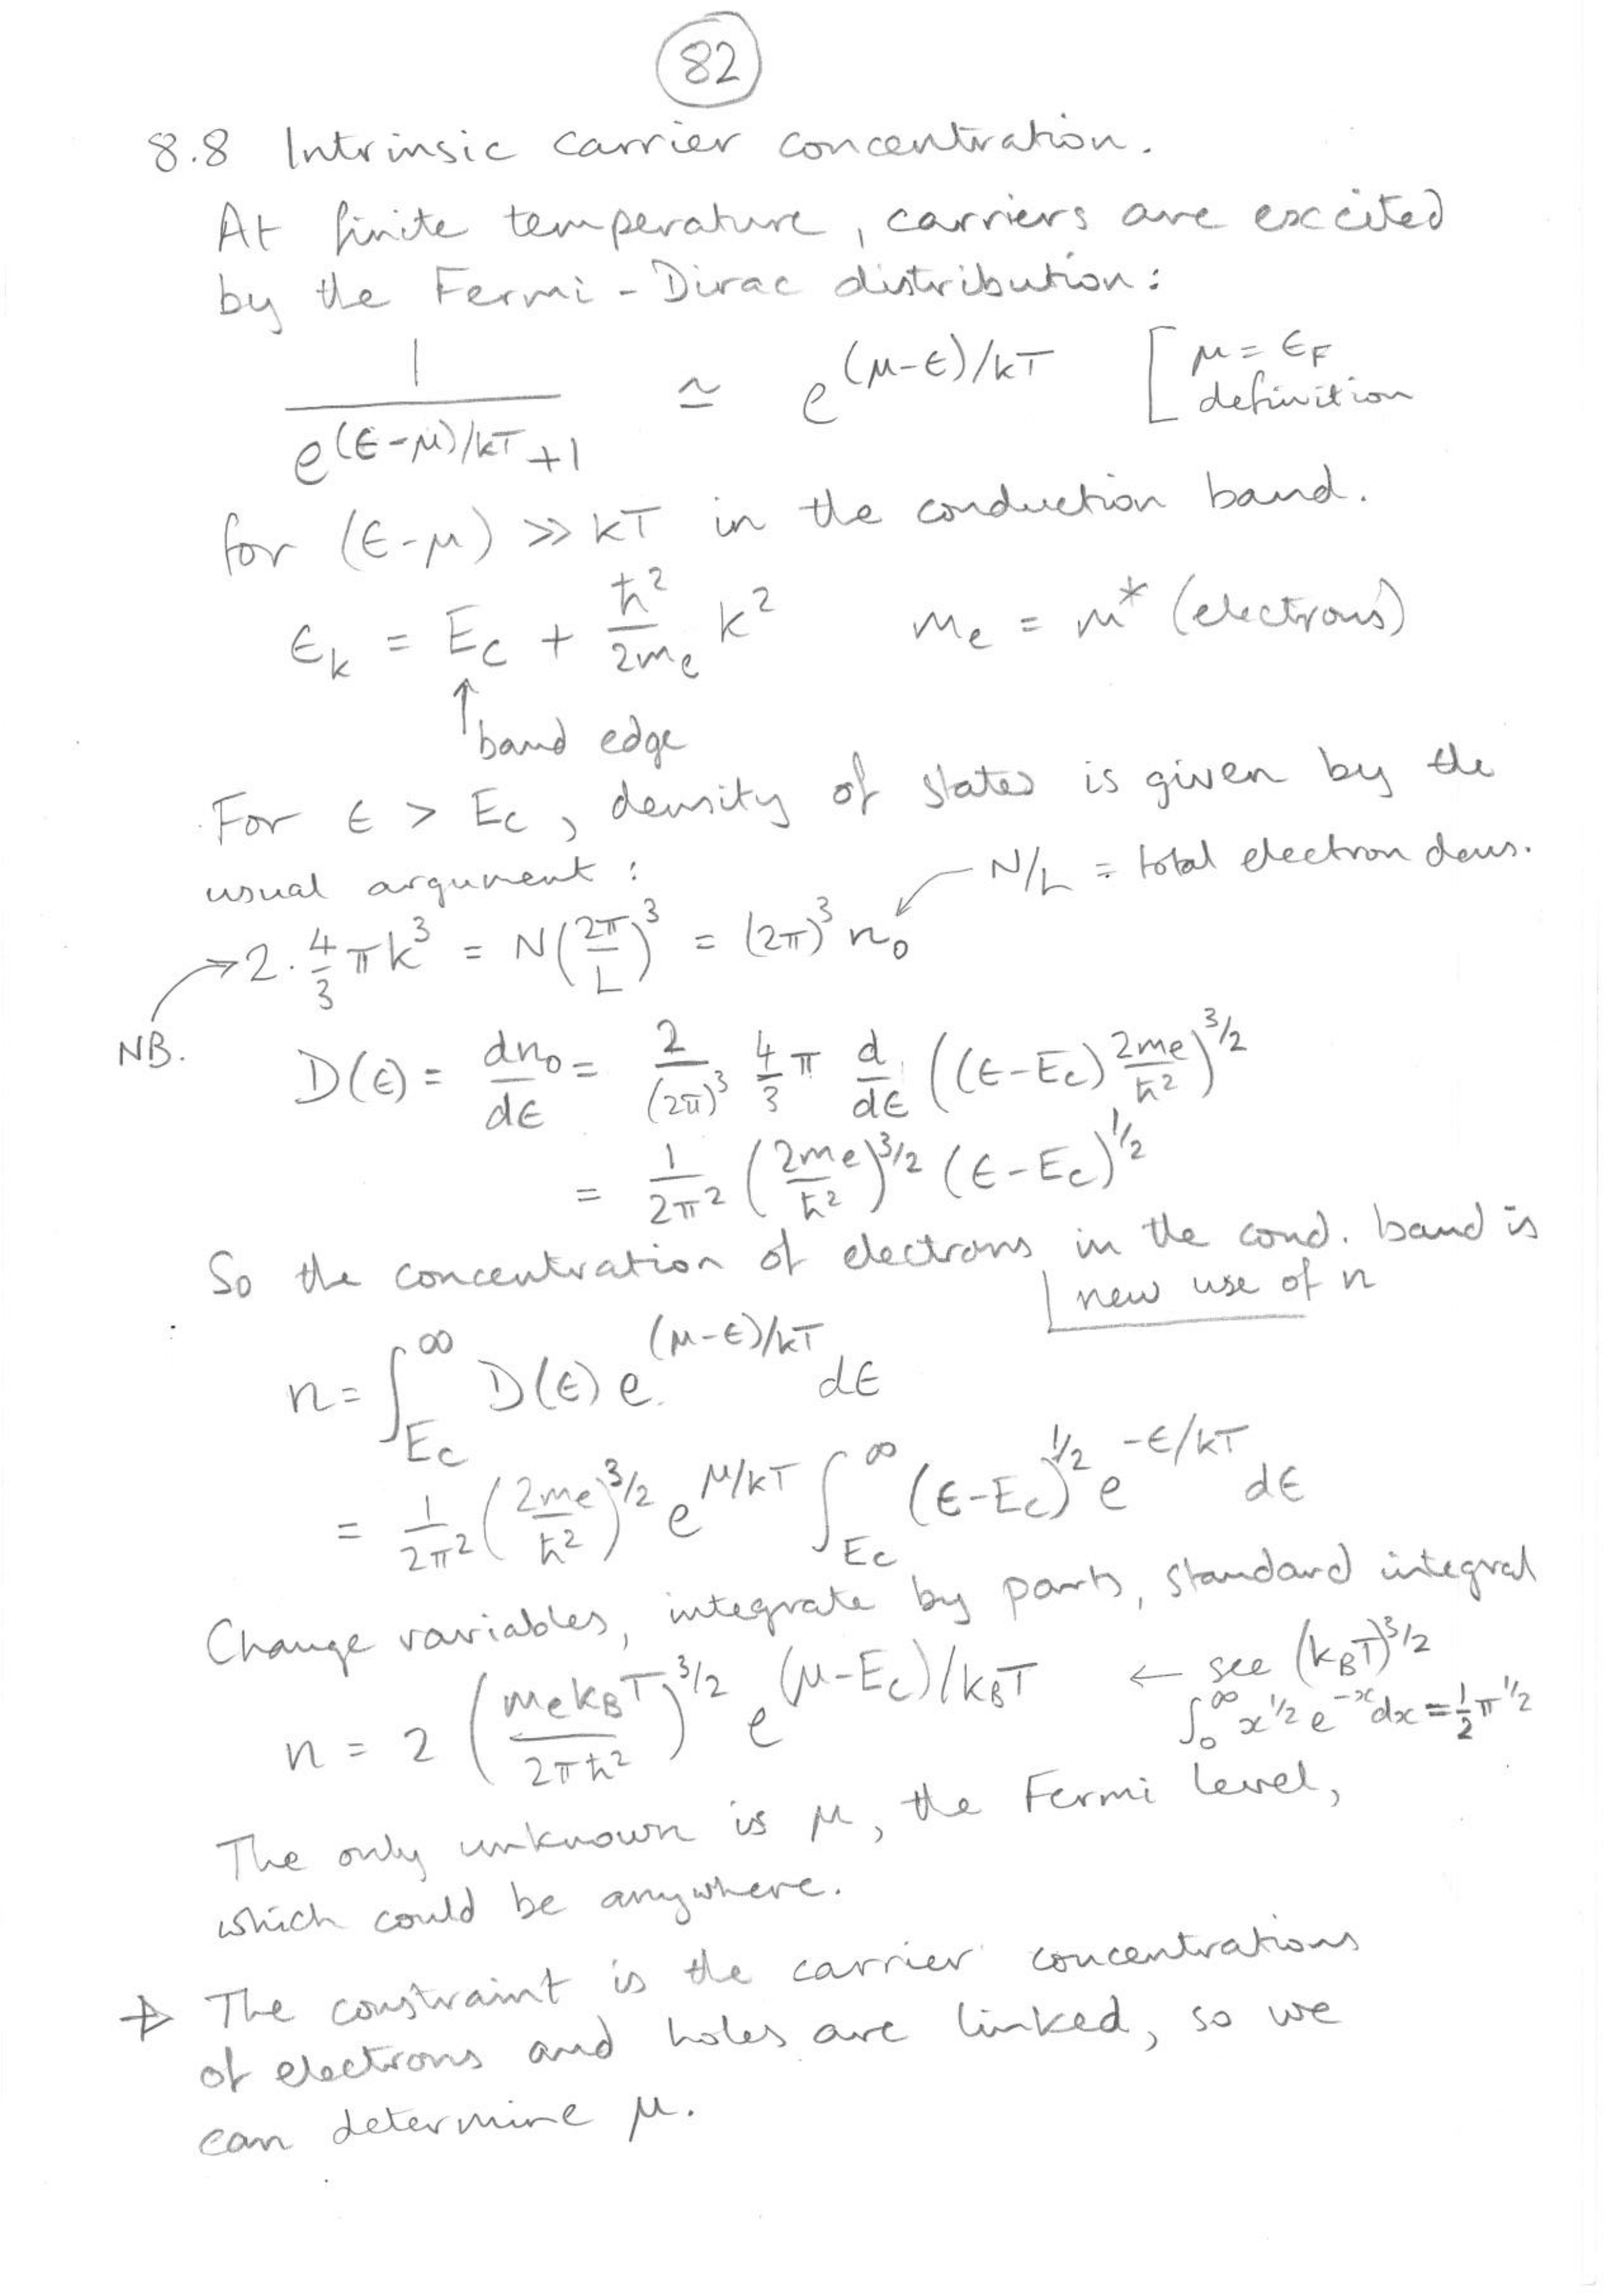 82
8.8 Intrinsic carrier concentration.
At finite temperature, carriers are excited
by the Fermi-Dirac distribution:
1/(e^{(ϵ-μ)/kT}+1) ≃ e^{(μ-ϵ)/kT} [μ = ϵ_F
definition
for (ϵ-μ) ≫ kT in the conduction band.
ϵ_k = E_C + ħ²/2m_e k² m_e = m* (electrons)
↑ band edge
For ϵ > E_C, density of states is given by the
usual argument: ↙ N/L = total electron dens.
→ 2 · 4/3 πk³ = N(2π/L)³ = (2π)³ n₀
NB.
D(ϵ) = dn₀/dϵ = 2/(2π)³ 4/3 π d/dϵ ((ϵ-E_C) 2m_e/ħ²)^{3/2}
= 1/2π² (2m_e/ħ²)^{3/2} (ϵ-E_C)^{1/2}
So the concentration of electrons in the cond. band is
new use of n
n = ∫_{E_C}^{∞} D(ϵ) e^{(μ-ϵ)/kT} dϵ
= 1/2π² (2m_e/ħ²)^{3/2} e^{μ/kT} ∫_{E_C}^{∞} (ϵ-E_C)^{1/2} e^{-ϵ/kT} dϵ
Change variables, integrate by parts, standard integral
n = 2 (m_e k_B T/2πħ²)^{3/2} e^{(μ-E_C)/k_B T} ← see (k_B T)^{3/2}
∫_0^∞ x^{1/2} e^{-x} dx = 1/2 π^{1/2}
The only unknown is μ, the Fermi level,
which could be anywhere.
The constraint is the carrier concentrations
of electrons and holes are linked, so we
can determine μ.